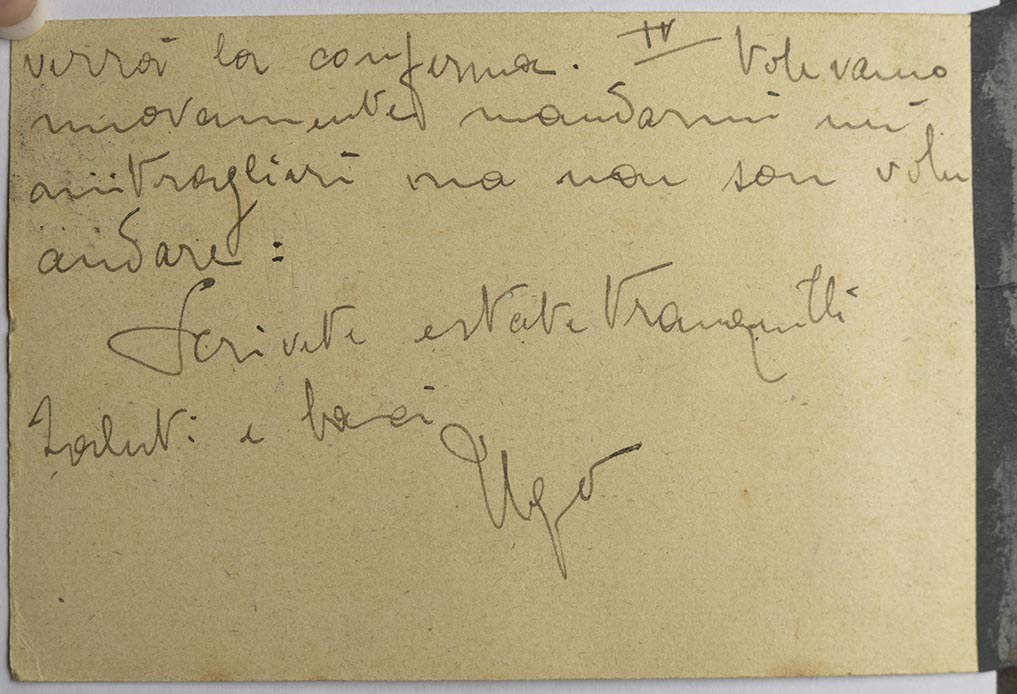 verrà la conferma. IV Volevano
nuovamente mandarmi nei
mitraglieri ma non son volu
andare :
Scrivete e state tranquilli
Saluti e baci
Ugo